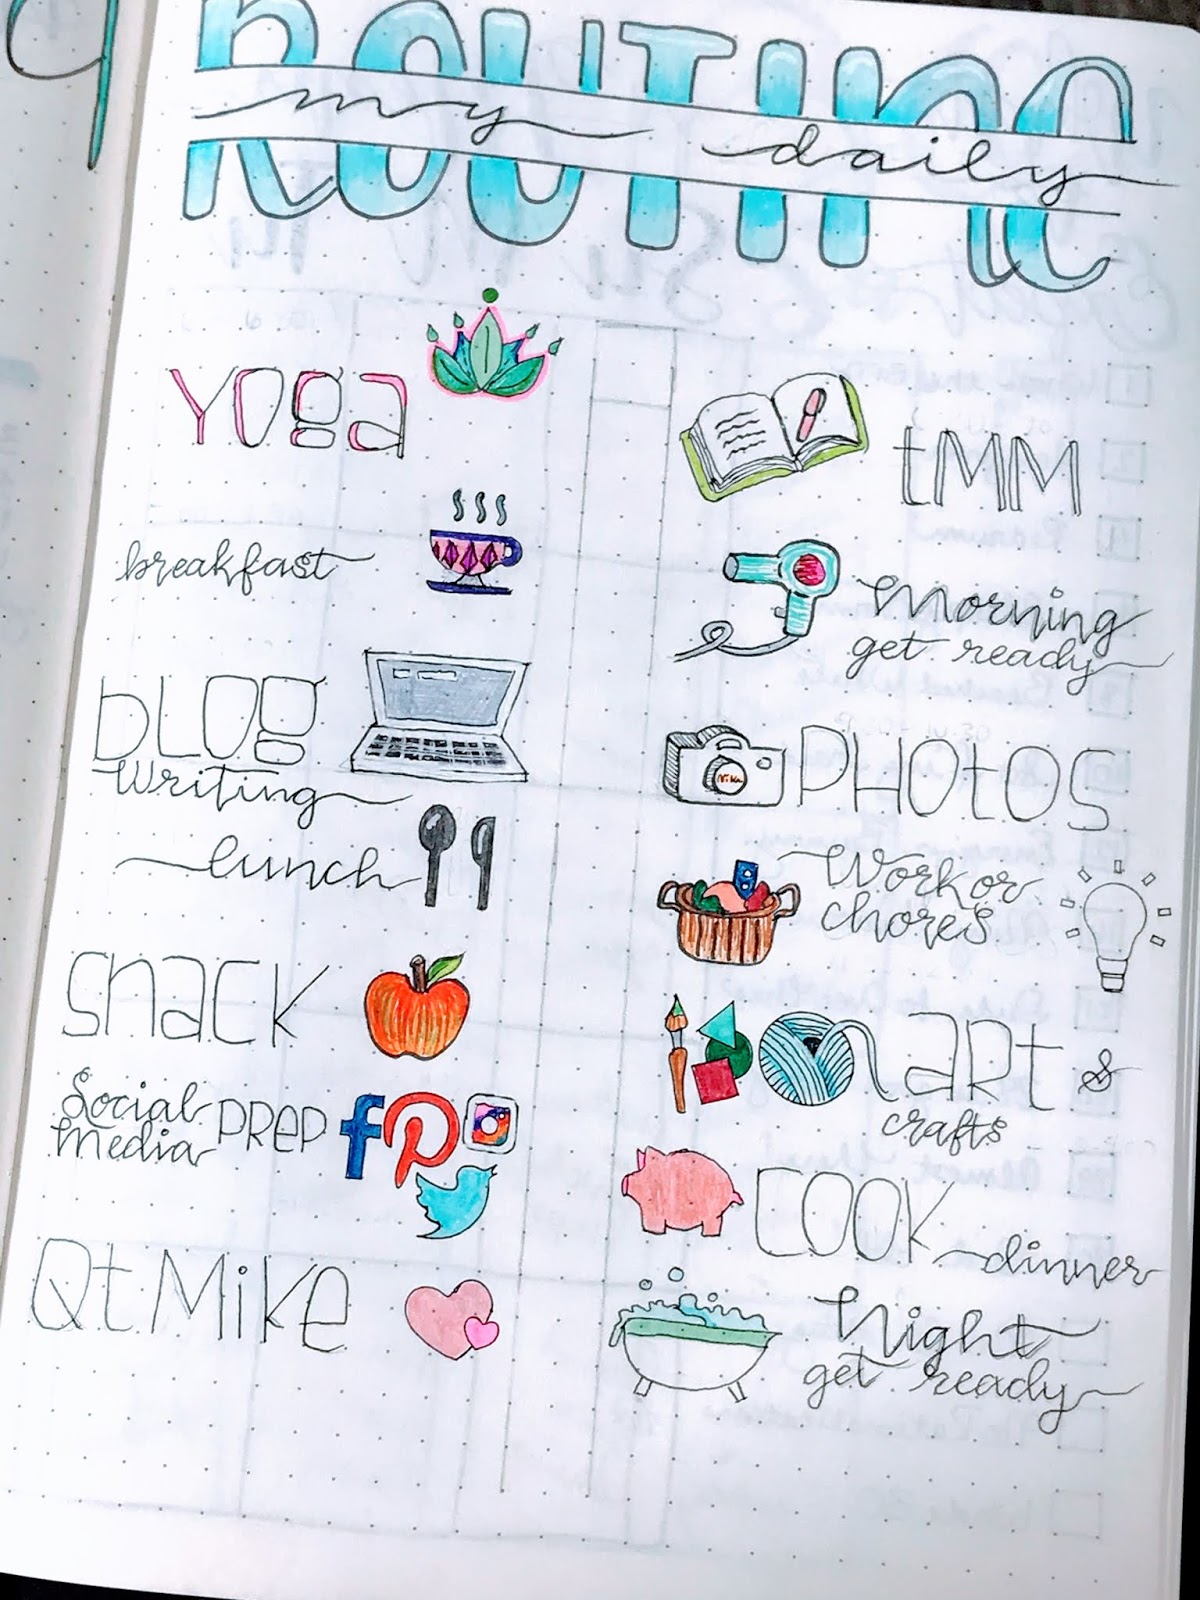 ROUTINE
my daily
YOga
tMM
breakfast
Morning
get ready
bLOg
Writing
PHOtOS
lunch
Work or
chores
SnacK
aRt &
crafts
Social
Media PReP
COOK dinner
Qt MiKe
Night
get ready